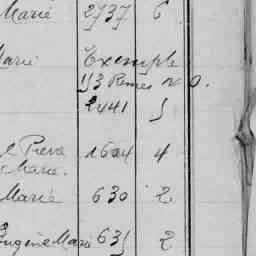 Marie 2737 6
Marie Exemple
1/3 Remes No 0.
2441 5
Pierre 1604 4
Marie.
Marie 630 2
Eugène Marie 631 2